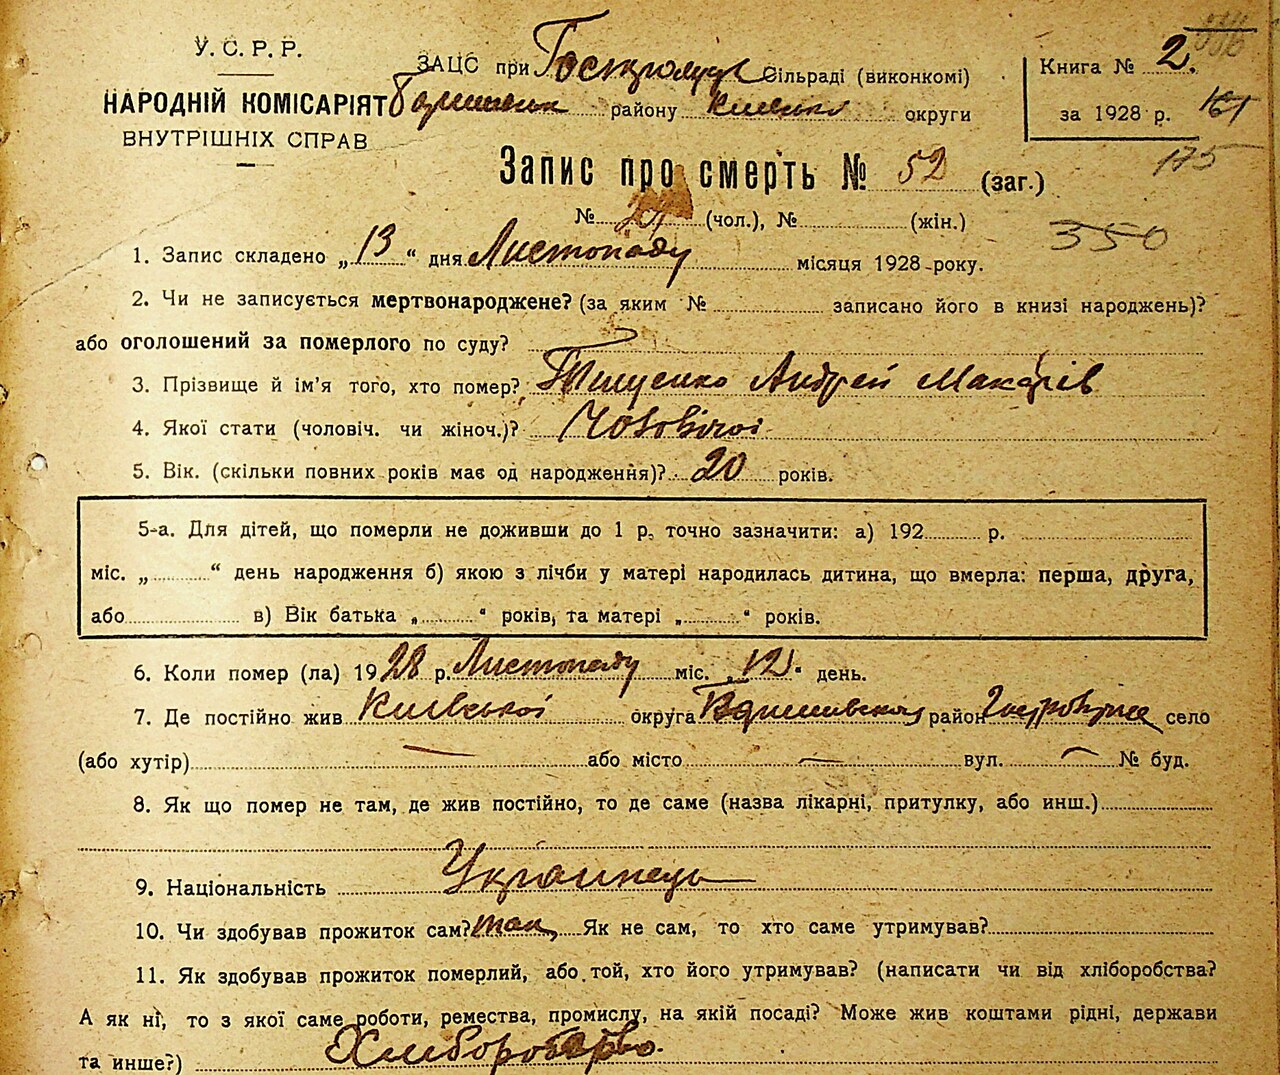 У. С. Р. Р.
НАРОДНІЙ КОМІСАРІЯТ
ВНУТРІШНІХ СПРАВ
ЗАЦС при Сільраді (виконкомі)
району Київсько округи
Книга № 2.
за 1928 р. 161
175
Запис про смерть № 52 (заг.)
№ (чол.), № (жін.)
350
1. Запис складено „13“ дня Листопаду місяця 1928 року.
2. Чи не записується мертвонароджене? (за яким № записано його в книзі народжень)?
або оголошений за померлого по суду?
3. Прізвище й ім'я того, хто помер? Тищенко Андрей Макарів
4. Якої стати (чоловіч. чи жіноч.)? Чоловічої
5. Вік. (скільки повних років має од народження)? 20 років.
5-а. Для дітей, що померли не доживши до 1 р. точно зазначити: а) 192 р.
міс. „ “ день народження б) якою з лічби у матері народилась дитина, що вмерла: перша, друга,
або в) Вік батька „ “ років, та матері „ “ років.
6. Коли помер (ла) 1928 р. Листопаду міс. „12“ день.
7. Де постійно жив Київської округа район село
(або хутір) — або місто — вул. — № буд.
8. Як що помер не там, де жив постійно, то де саме (назва лікарні, притулку, або инш.)
9. Національність Українець
10. Чи здобував прожиток сам? так Як не сам, то хто саме утримував?
11. Як здобував прожиток померлий, або той, хто його утримував? (написати чи від хліборобства?
А як ні, то з якої саме роботи, ремества, промислу, на якій посаді? Може жив коштами рідні, держави
та инше?) Хліборобство.